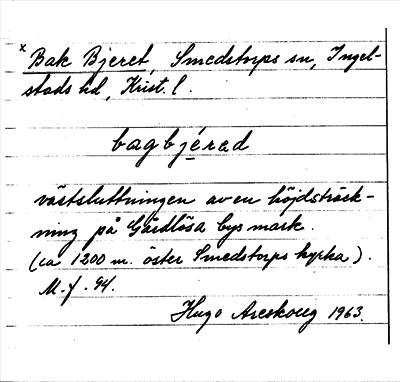 x Bak Bjeret, Smedstorps sn, Ingel-
stads hd, Krist. l.
bagbjérad
västsluttningen av en höjdsträck-
ning på Gärdlösa bys mark.
(ca 1200 m. öster Smedstorps kyrka).
M.f. 94.
Hugo Areskoug 1963.